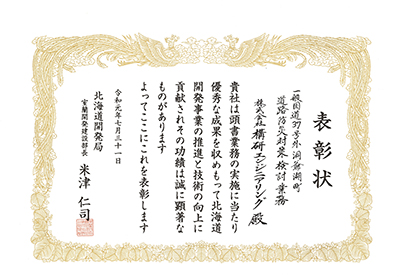 表彰状
一般国道37号外洞爺湖町
道路防災対策検討業務
株式会社構研エンジニアリング殿
貴社は頭書業務の実施に当たり
優秀な成果を収めもって北海道
開発事業の推進と技術の向上に
貢献されその功績は誠に顕著な
ものがあります
よってここにこれを表彰します
令和元年七月三十一日
北海道開発局
室蘭開発建設部長 米津仁司